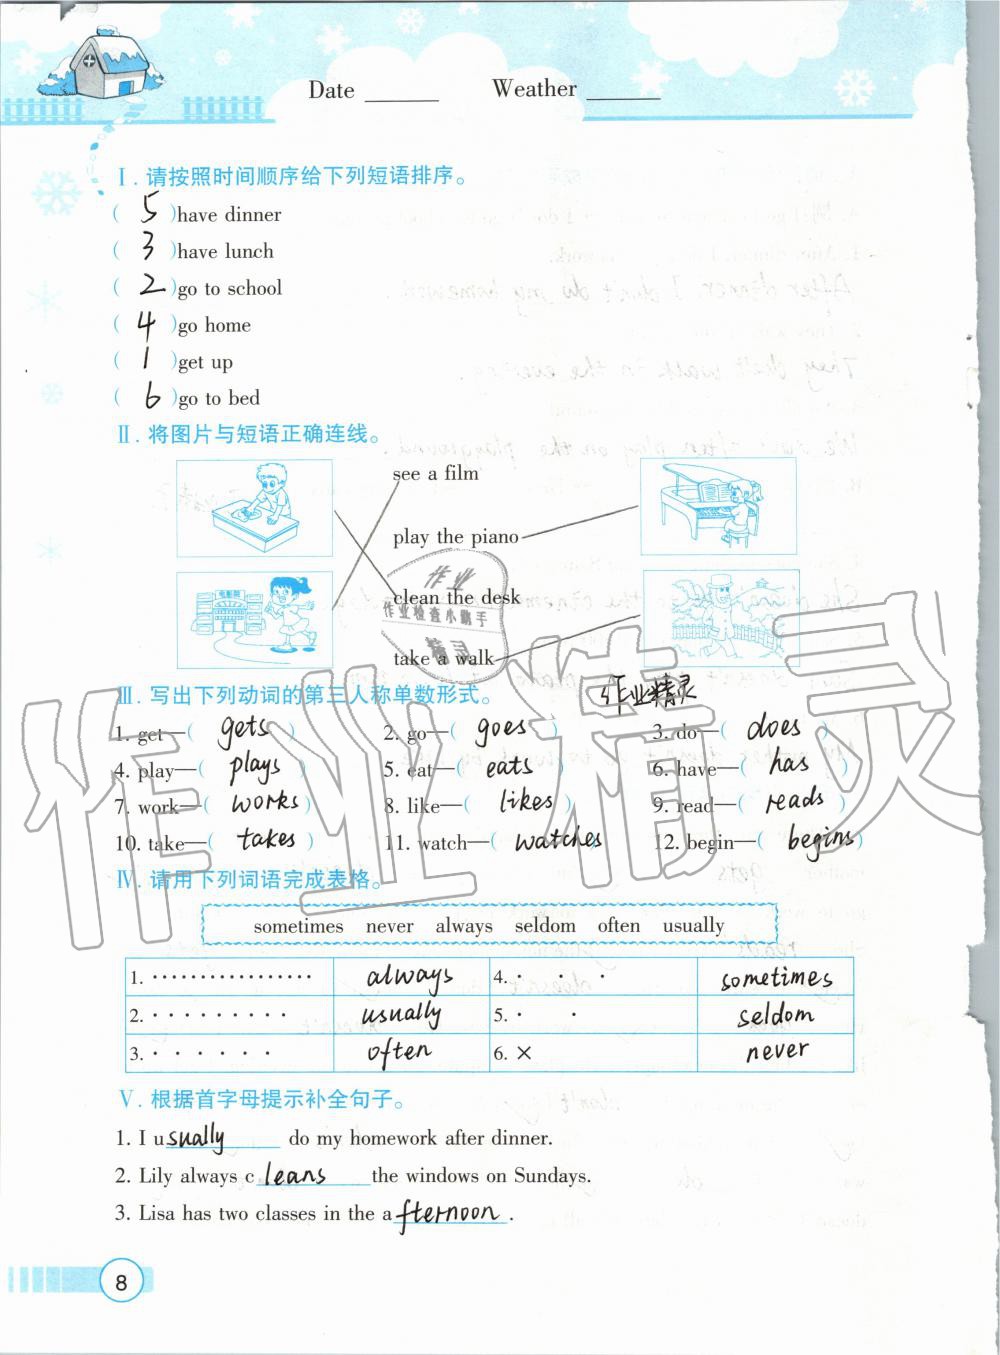 Date ______ Weather ______
Ⅰ. 请按照时间顺序给下列短语排序。
( 5 )have dinner
( 3 )have lunch
( 2 )go to school
( 4 )go home
( 1 )get up
( 6 )go to bed
Ⅱ. 将图片与短语正确连线。
see a film
play the piano
电影院
clean the desk
take a walk
作业
作业检查小助手
精灵
Ⅲ. 写出下列动词的第三人称单数形式。
作业精灵
1. get—( gets ) 2. go—( goes ) 3. do—( does )
4. play—( plays ) 5. eat—( eats ) 6. have—( has )
7. work—( works ) 8. like—( likes ) 9. read—( reads )
10. take—( takes ) 11. watch—( watches ) 12. begin—( begins )
作业精灵
Ⅳ. 请用下列词语完成表格。
sometimes never always seldom often usually
1. ················· always 4. · · · sometimes
2. ········· usually 5. · · seldom
3. ······ often 6. × never
Ⅴ. 根据首字母提示补全句子。
1. I usually do my homework after dinner.
2. Lily always cleans the windows on Sundays.
3. Lisa has two classes in the afternoon.
8